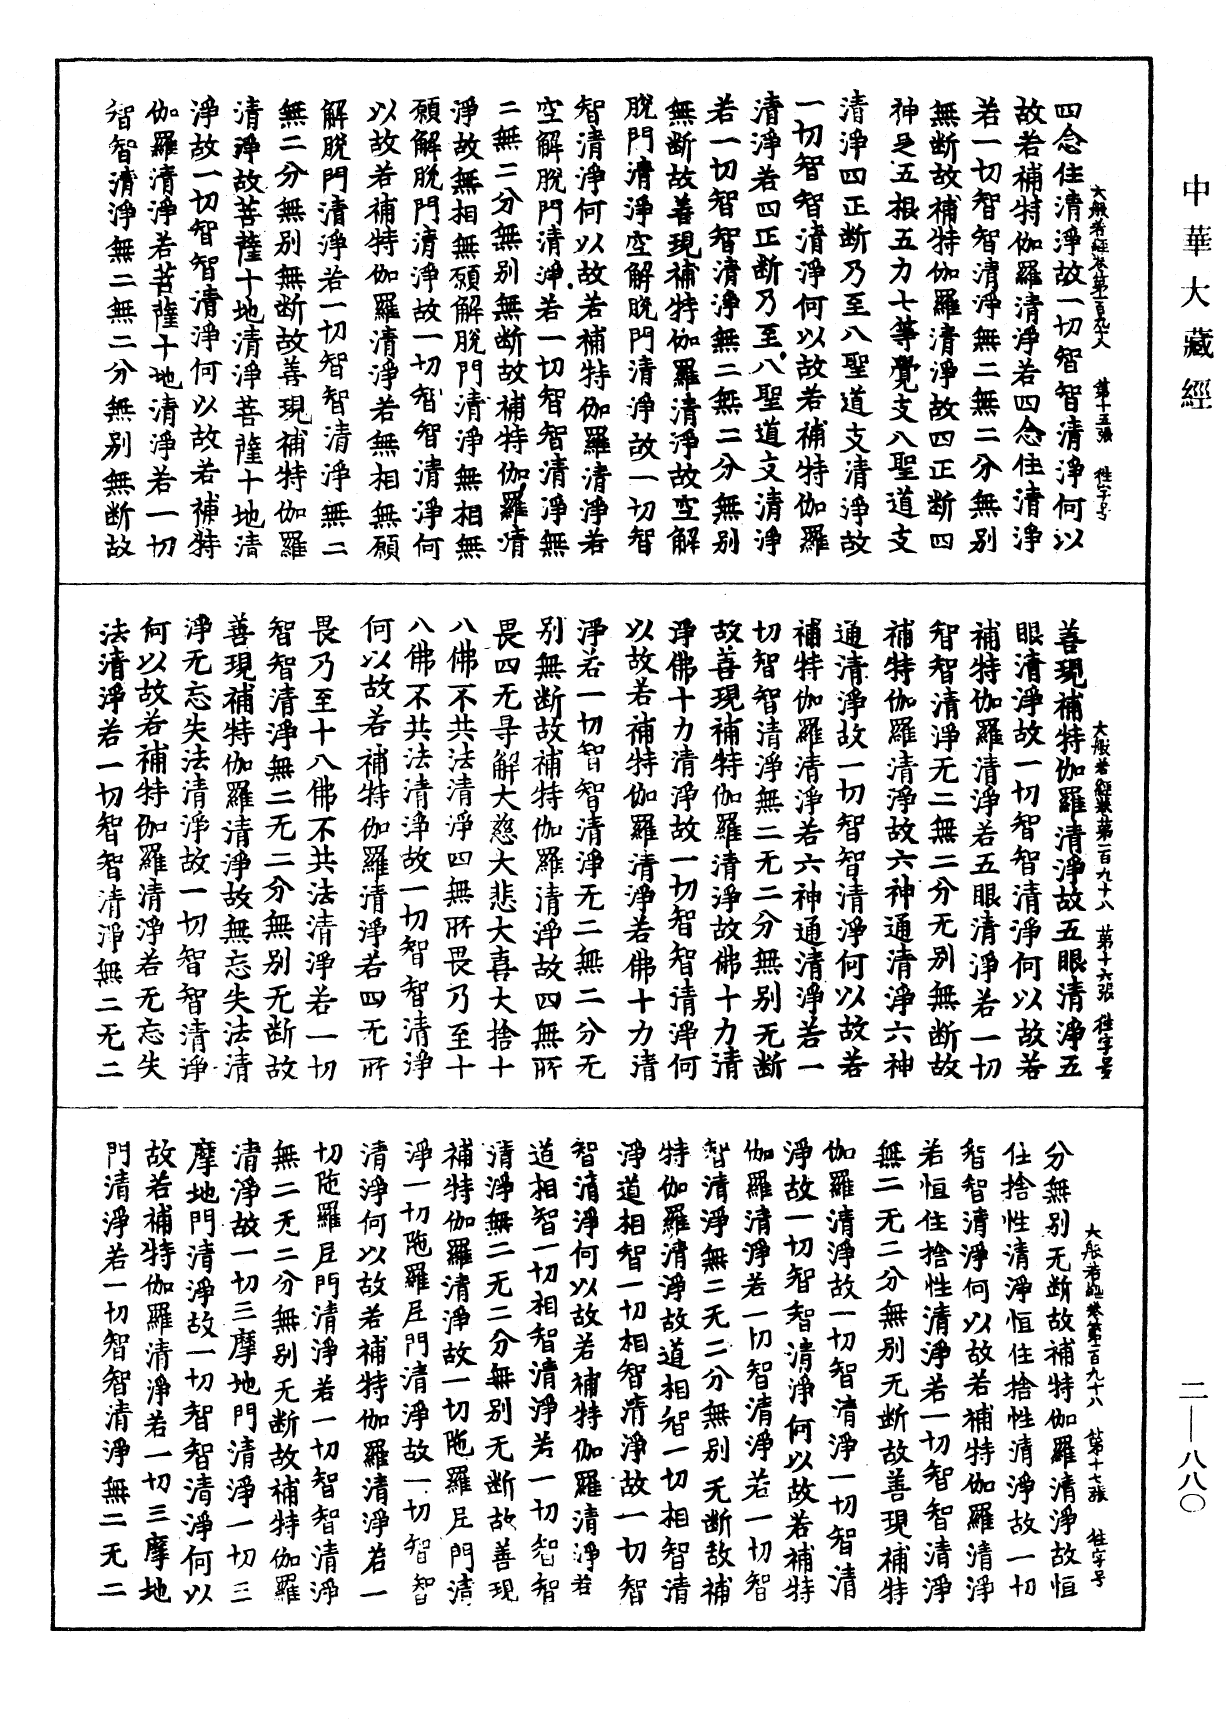 中華大藏經
大般若經卷第一百九十八 第十五張 往字号
四念住清淨故一切智智清淨何以
故若補特伽羅清淨若四念住清淨
若一切智智清淨無二無二分無別
無斷故補特伽羅清淨故四正斷四
神足五根五力七等覺支八聖道支
清淨四正斷乃至八聖道支清淨故
一切智智清淨何以故若補特伽羅
清淨若四正斷乃至八聖道支清淨
若一切智智清淨無二無二分無別
無斷故善現補特伽羅清淨故空解
脫門清淨空解脫門清淨故一切智
智清淨何以故若補特伽羅清淨若
空解脫門清淨若一切智智清淨無
二無二分無別無斷故補特伽羅清
淨故無相無願解脫門清淨無相無
願解脫門清淨故一切智智清淨何
以故若補特伽羅清淨若無相無願
解脫門清淨若一切智智清淨無二
無二分無別無斷故善現補特伽羅
清淨故菩薩十地清淨菩薩十地清
淨故一切智智清淨何以故若補特
伽羅清淨若菩薩十地清淨若一切
智智清淨無二無二分無別無斷故
大般若經卷第一百九十八 第十六張 往字号
善現補特伽羅清淨故五眼清淨五
眼清淨故一切智智清淨何以故若
補特伽羅清淨若五眼清淨若一切
智智清淨无二無二分无別無斷故
補特伽羅清淨故六神通清淨六神
通清淨故一切智智清淨何以故若
補特伽羅清淨若六神通清淨若一
切智智清淨無二无二分無別无斷
故善現補特伽羅清淨故佛十力清
淨佛十力清淨故一切智智清淨何
以故若補特伽羅清淨若佛十力清
淨若一切智智清淨无二無二分无
別無斷故補特伽羅清淨故四無所
畏四无㝵解大慈大悲大喜大捨十
八佛不共法清淨四無所畏乃至十
八佛不共法清淨故一切智智清淨
何以故若補特伽羅清淨若四无所
畏乃至十八佛不共法清淨若一切
智智清淨無二无二分無別无斷故
善現補特伽羅清淨故無忘失法清
淨无忘失法清淨故一切智智清淨
何以故若補特伽羅清淨若无忘失
法清淨若一切智智清淨無二无二
大般若經卷第一百九十八 第十七張 往字号
分無別无斷故補特伽羅清淨故恒
住捨性清淨恒住捨性清淨故一切
智智清淨何以故若補特伽羅清淨
若恒住捨性清淨若一切智智清淨
無二无二分無別无斷故善現補特
伽羅清淨故一切智清淨一切智清
淨故一切智智清淨何以故若補特
伽羅清淨若一切智清淨若一切智
智清淨無二无二分無別无斷故補
特伽羅清淨故道相智一切相智清
淨道相智一切相智清淨故一切智
智清淨何以故若補特伽羅清淨若
道相智一切相智清淨若一切智智
清淨無二无二分無別无斷故善現
補特伽羅清淨故一切陁羅尼門清
淨一切陁羅尼門清淨故一切智智
清淨何以故若補特伽羅清淨若一
切陁羅尼門清淨若一切智智清淨
無二无二分無別无斷故補特伽羅
清淨故一切三摩地門清淨一切三
摩地門清淨故一切智智清淨何以
故若補特伽羅清淨若一切三摩地
門清淨若一切智智清淨無二无二
二—八八〇